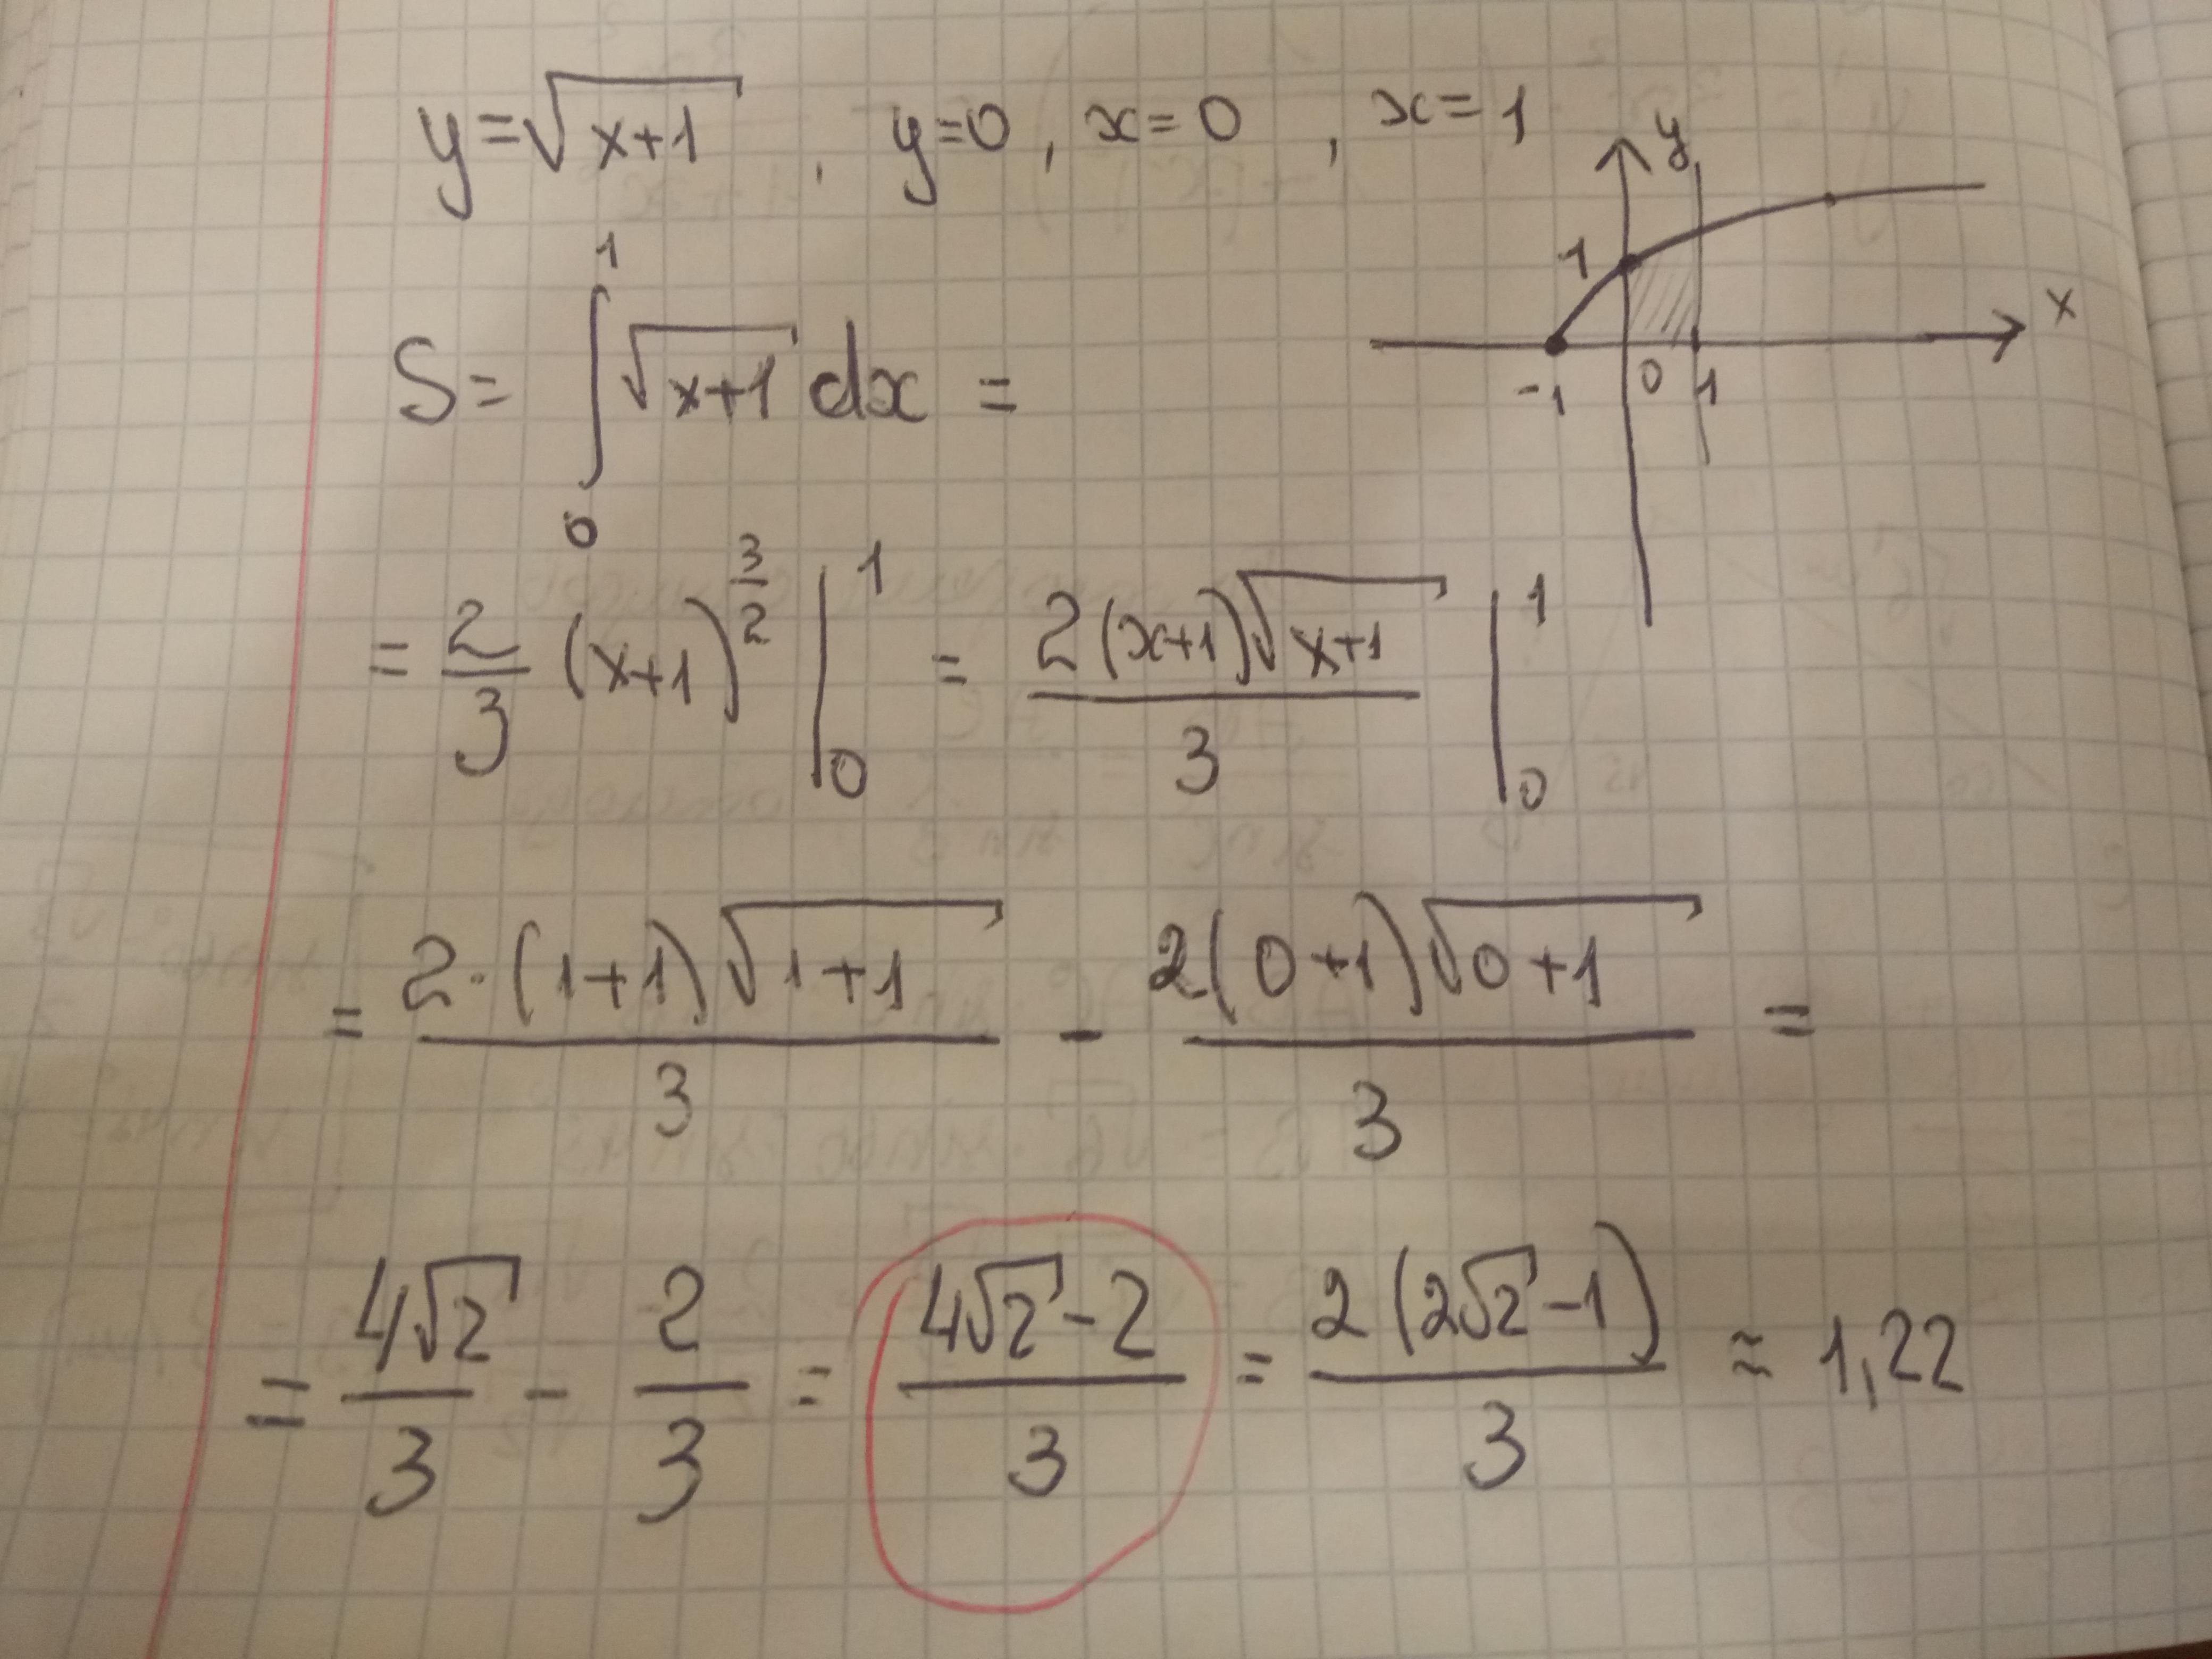 y=√(x+1) , y=0 , x=0 , x=1
y
1
x
-1 0 1
S= ∫₀¹ √(x+1) dx =
= 2/3 (x+1)^(3/2) |₀¹ = 2(x+1)√(x+1) / 3 |₀¹
= 2·(1+1)√(1+1) / 3 - 2(0+1)√(0+1) / 3 =
= 4√2 / 3 - 2 / 3 = (4√2-2) / 3 = 2(2√2-1) / 3 ≈ 1,22